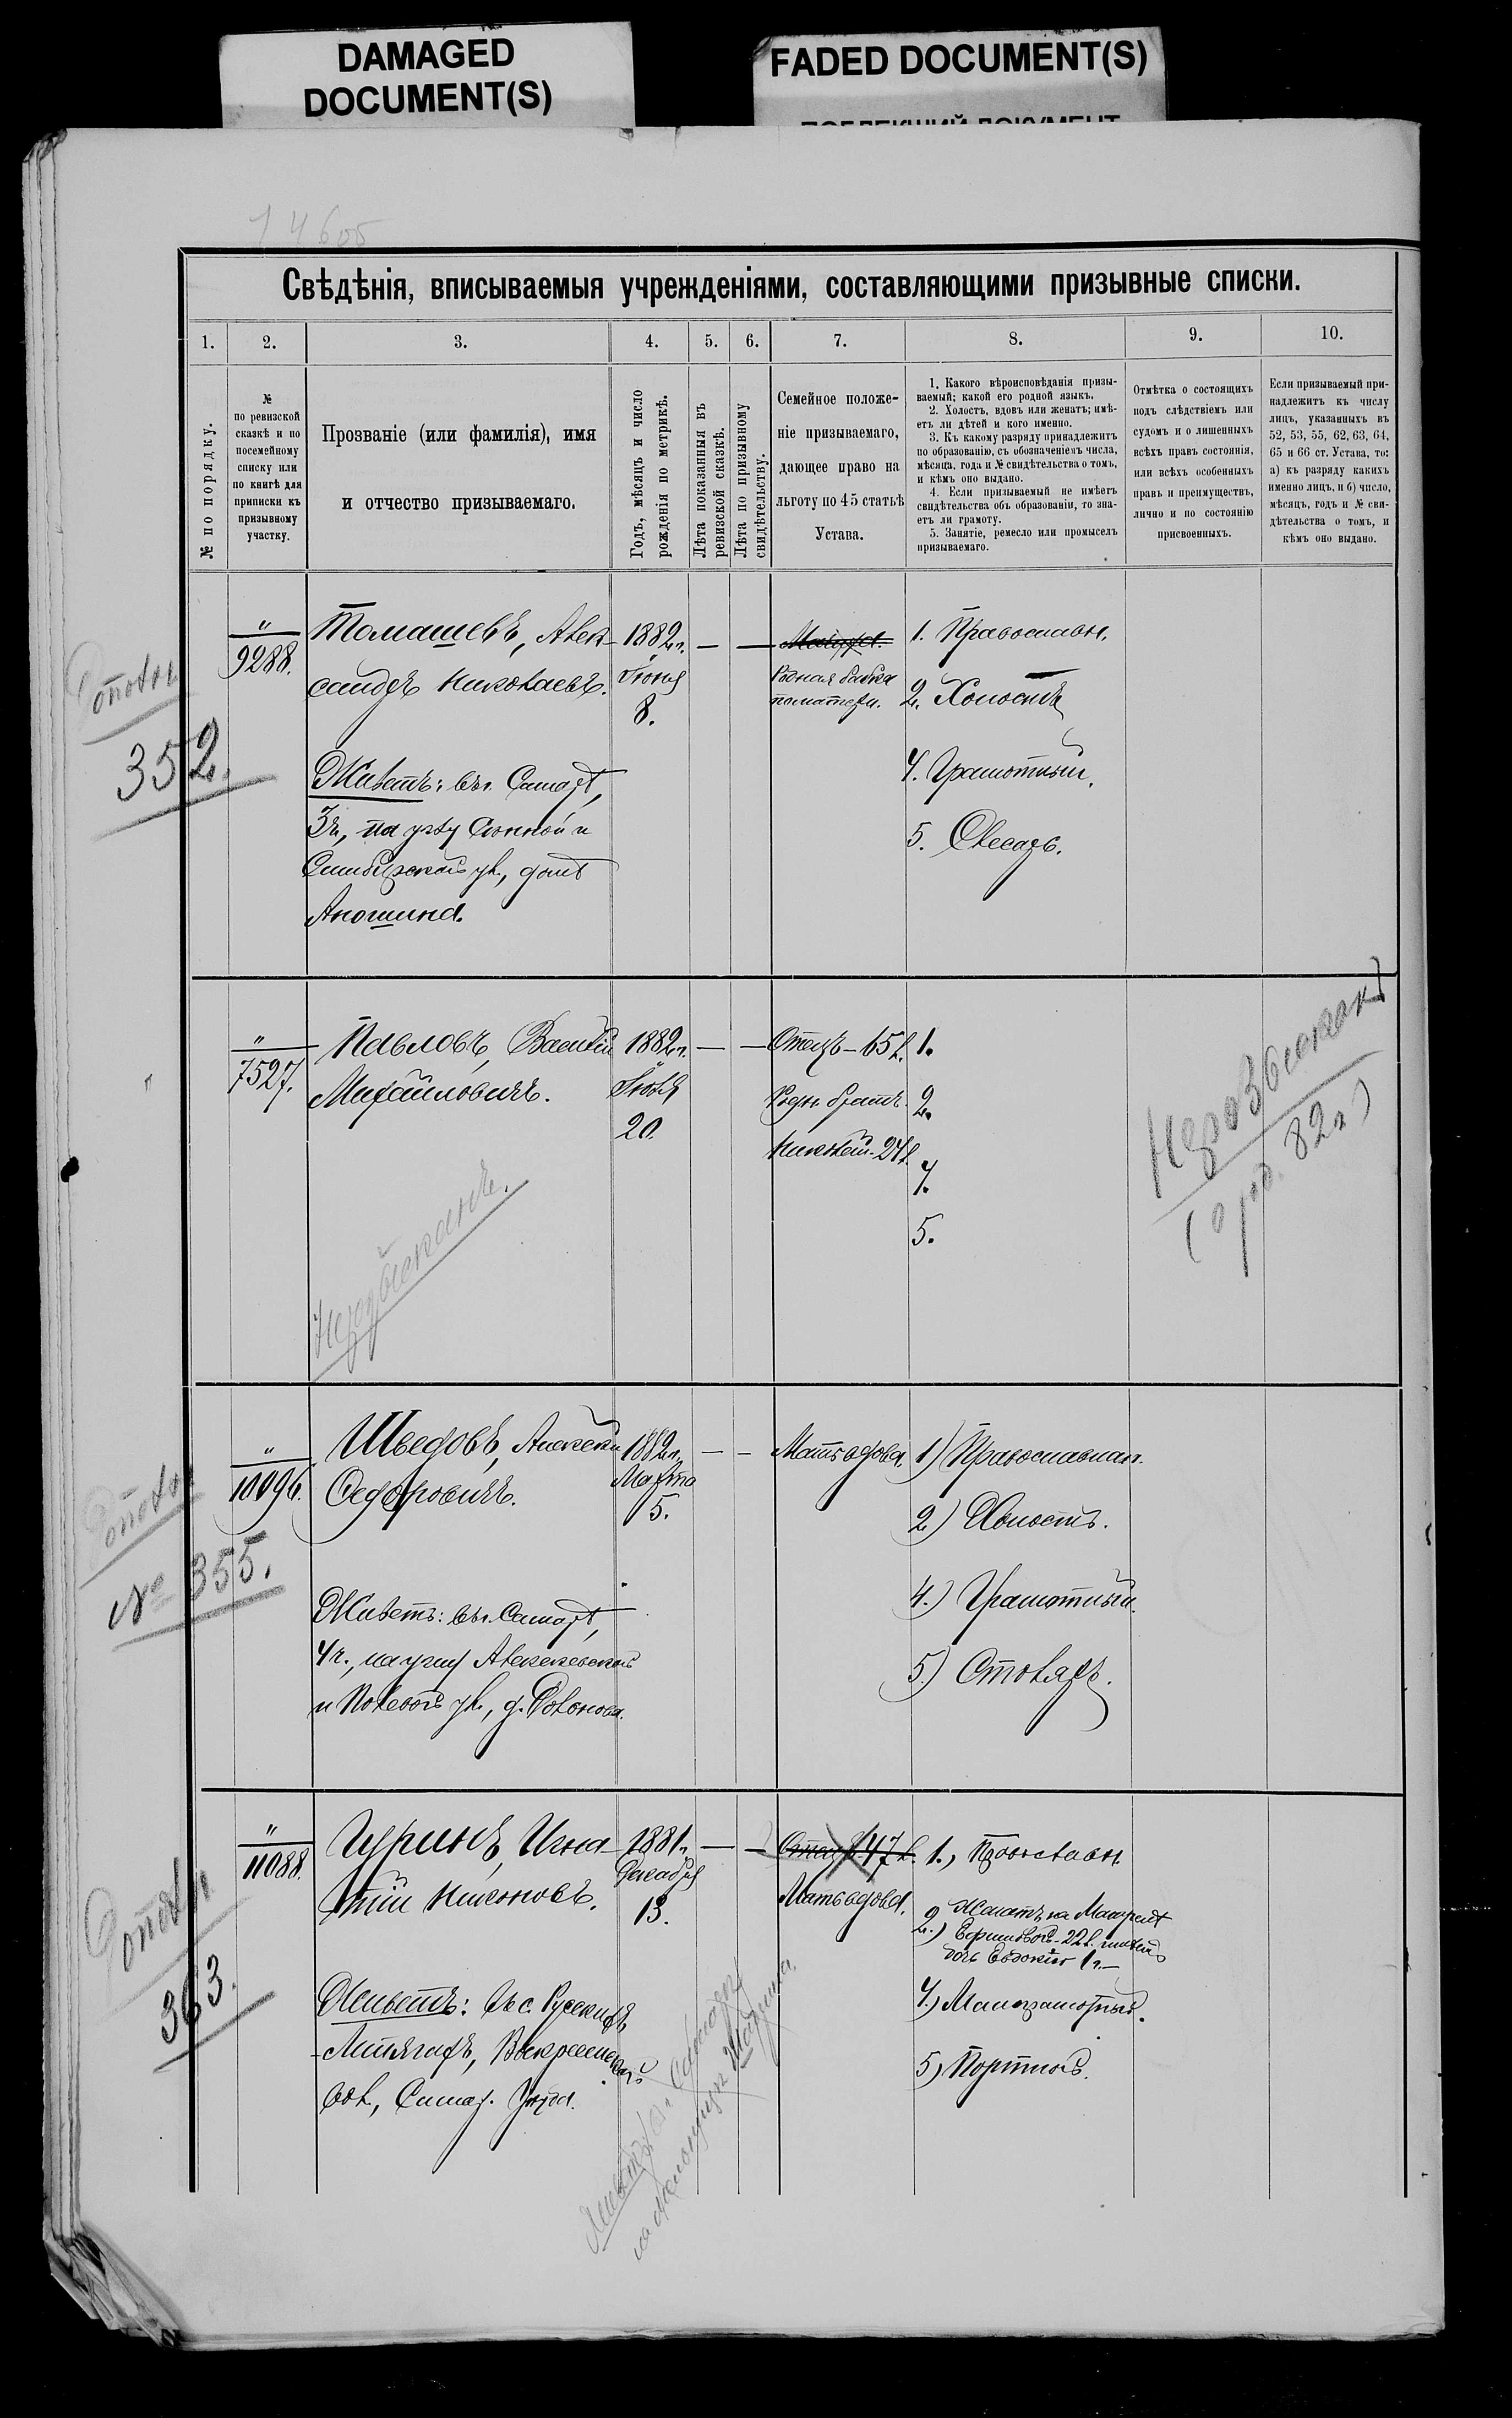 DAMAGED
DOCUMENT(S)
FADED DOCUMENT(S)
Свѣдѣнія, вписываемыя учрежденіями, составляющими призывные списки.
1. 2. 3. 4. 5. 6. 7. 8. 9. 10.
№ по порядку.
№
по ревизской
сказкѣ и по
посемейному
списку или
по книгѣ для
приписки къ
призывному
участку.
Прозваніе (или фамилія), имя
и отчество призываемаго.
Годъ, мѣсяцъ и число
рожденія по метрикѣ.
Лѣта показанныя въ
ревизской сказкѣ.
Лѣта по призывному
свидѣтельству.
Семейное положе-
ніе призываемаго,
дающее право на
льготу по 45 статьѣ
Устава.
1. Какого вѣроисповѣданія призы-
ваемый; какой его родной языкъ.
2. Холостъ, вдовъ или женатъ; имѣ-
етъ ли дѣтей и кого именно.
3. Къ какому разряду принадлежитъ
по образованію, съ обозначеніемъ числа,
мѣсяца, года и № свидѣтельства о томъ,
и кѣмъ оно выдано.
4. Если призываемый не имѣетъ
свидѣтельства объ образованіи, то зна-
етъ ли грамоту.
5. Занятіе, ремесло или промыселъ
призываемаго.
Отмѣтка о состоящихъ
подъ слѣдствіемъ или
судомъ и о лишенныхъ
всѣхъ правъ состоянія,
или всѣхъ особенныхъ
правъ и преимуществъ,
лично и по состоянію
присвоенныхъ.
Если призываемый при-
надлежитъ къ числу
лицъ, указанныхъ въ
52, 53, 55, 62, 63, 64,
65 и 66 ст. Устава, то:
а) къ разряду какихъ
именно лицъ, и б) число,
мѣсяцъ, годъ и № сви-
дѣтельства о томъ, и
кѣмъ оно выдано.
352.
"
9288.
Томашевъ, Алек-
сандръ Николаевъ.
Живетъ: въ г. Самарѣ,
3 ч, на углу Сѣнной и
Симбирской ул., домъ
Аношина.
1882 г.
Іюня
8.
— —
Родная бабка
по матери.
1. Православн.
2. Холостъ
4. Грамотный.
5. Слесарь.
"
7527.
Павловъ, Василій
Михайловичъ.
Неразысканъ.
1882 г.
Іюля
20.
— —
Отецъ - 65 л.
Родн. братъ
Николай - 24 л.
1.
2.
4.
5.
Неразысканъ
(о род. 82 г)
№ 355.
"
10096.
Шведовъ, Алексѣй
Ѳедоровичъ.
Живетъ: въ г. Самарѣ,
4 ч., на углу Алексѣевской
и Полевой ул., д.
1882 г.
Марта
5.
— —
Мать вдова.
1) Православнаго.
2) Холостъ.
4.) Грамотный.
5.) Столяръ.
363.
"
11088.
Гуринъ, Игна-
тій Никоновъ.
Живетъ: въ с. Русскихъ
Липягахъ, Воскресенской
вол, Самар. Уѣзда.
1881 г.
Декабря
13.
— —
Отецъ 47 л.
Мать вдова.
1., Православн.
2.) Женатъ на
Ефимовой - 22 л. имѣетъ
дочь Евдокію 1 г. —
4.) Малограмотный.
5.) Портной.